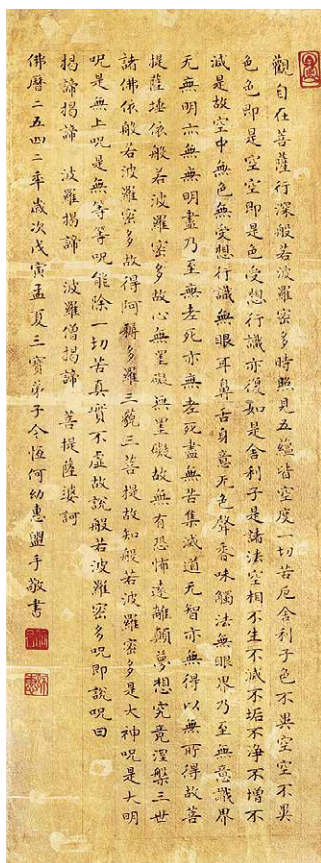 觀自在菩薩行深般若波羅密多時照見五蘊皆空度一切苦厄舍利子色不異空空不異
色色即是空空即是色受想行識亦復如是舍利子是諸法空相不生不滅不垢不净不增不
減是故空中無色無受想行識無眼耳鼻舌身意无色聲香味觸法無眼界乃至無意識界
无無明亦無無明盡乃至無老死亦無老死盡無苦集滅道无智亦無得以無所得故菩
提薩埵依般若波羅密多故心無罣礙無罣礙故無有恐怖遠離顛夢想究竟涅槃三世
諸佛依般若波羅密多故得阿耨多羅三藐三菩提故知般若波羅密多是大神呪是大明
呪是無上呪是無等等呪能除一切苦真實不虛故說般若波羅密多呪即說呪曰
揭諦揭諦 波羅揭諦 波羅僧揭諦 菩提薩婆訶
佛曆二五四二年歲次戊寅孟夏三寶弟子令恆何幼惠盥手敬書